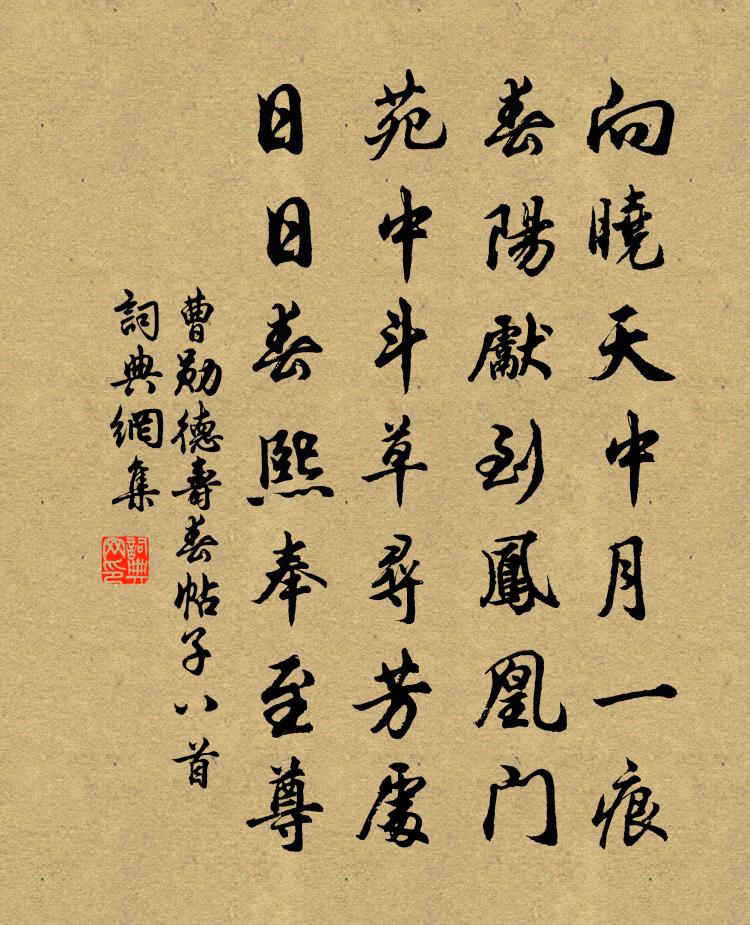 向曉天中月一痕
春陽獻到鳳凰門
苑中斗草尋芳處
日日春熙奉至尊
曹勛德壽春帖子八首
詞典網集
詞典网印